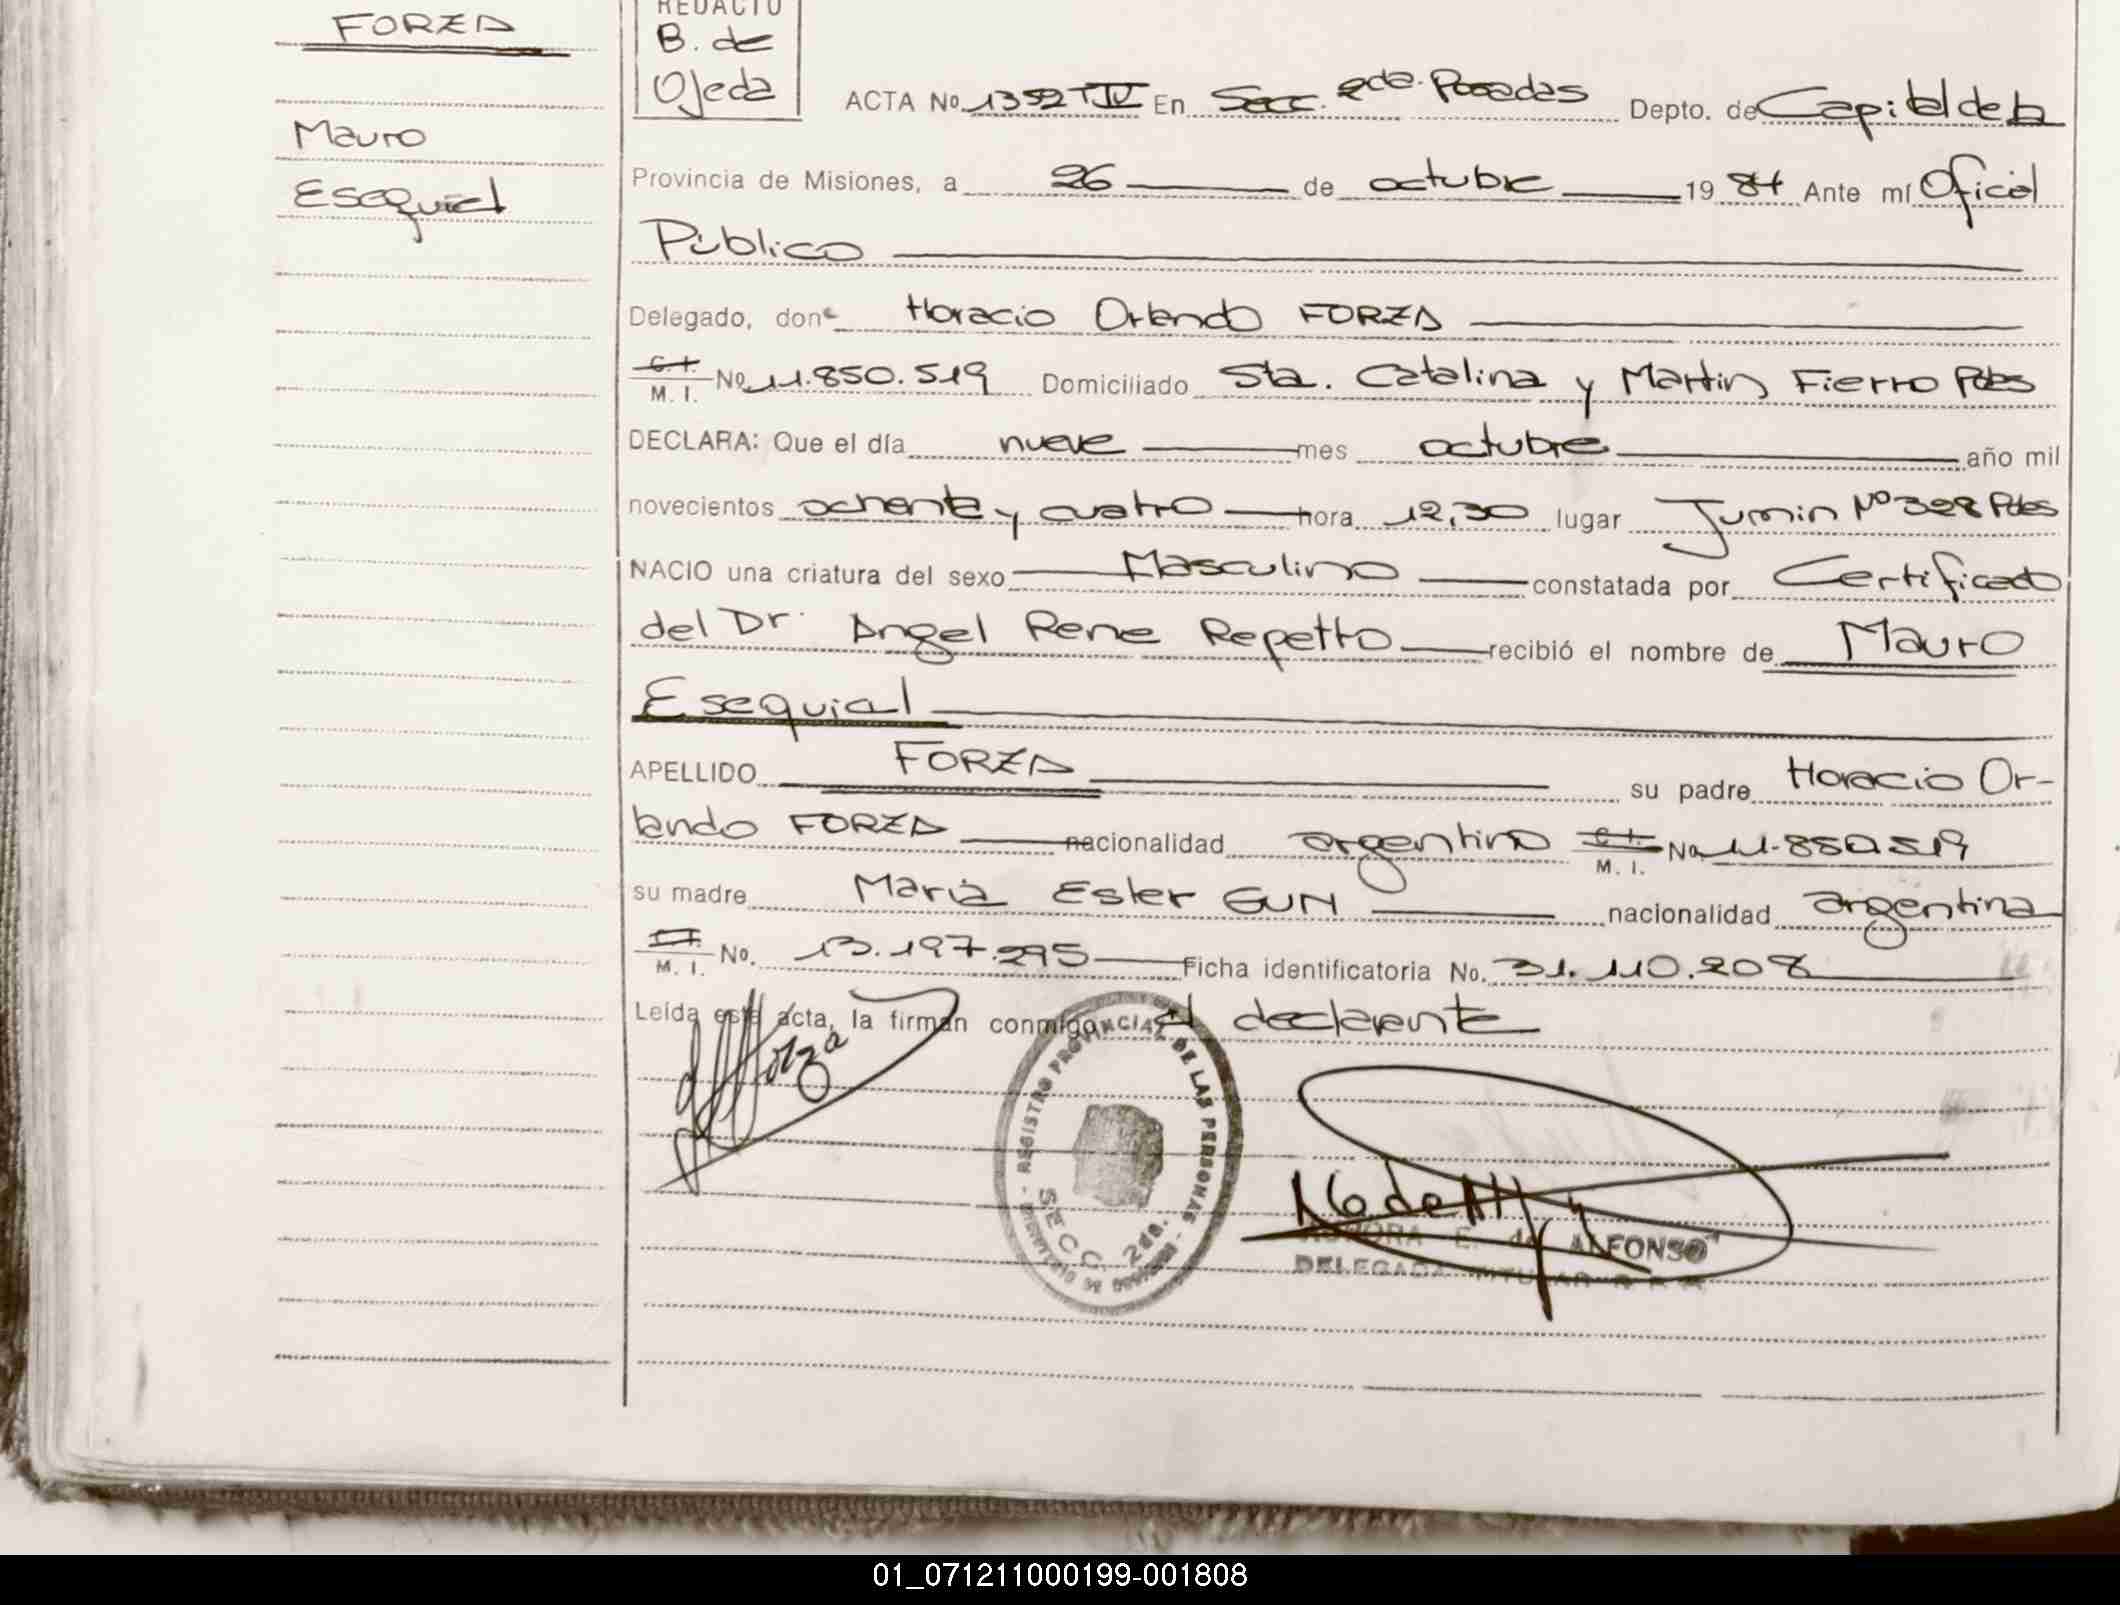 FORZA
Mauro
Esequiel
REDACTO
B. de
Ojeda
ACTA No. 1352 TIV En Secc. 2da. Posadas Depto. de Capital de la
Provincia de Misiones, a 26 de octubre 19 84 Ante mí Oficial
Público
Delegado, don Horacio Orlando FORZA
C. I. M. I. No 11.850.519 Domiciliado Sta. Catalina y Martin Fierro Pdas
DECLARA: Que el día nueve mes octubre año mil
novecientos ochenta y cuatro hora 12,30 lugar Junin Nº 328 Pdas
NACIO una criatura del sexo Masculino constatada por Certificado
del Dr. Angel Rene Repetto recibió el nombre de Mauro
Esequiel
APELLIDO FORZA su padre Horacio Or-
lando FORZA nacionalidad argentino C. I. M. I. No 11.850.519
su madre Maria Ester GUN nacionalidad argentina
C. I. M. I. No. 13.197.295 Ficha identificatoria No. 31.110.208
Leída esta acta, la firman conmigo el declarante
REGISTRO PROVINCIAL DE LAS PERSONAS
SECC. 2da.
E. de ALFONSO
DELEGADA TITULAR R. P. P.
01_071211000199-001808